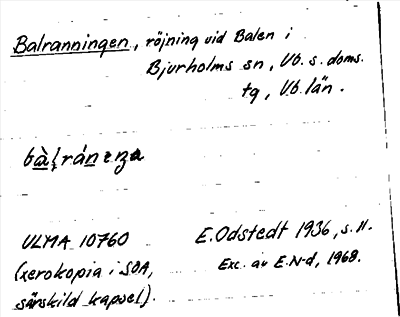 Balranningen, röjning vid Balen i
Bjurholms sn, Vb. s. doms.
tg, Vb. län.
ULMA 10760
(xerokopia i SOA,
särskild kapsel).
E. Odstedt 1936, s. 11.
Exc. av E. N-d, 1968.